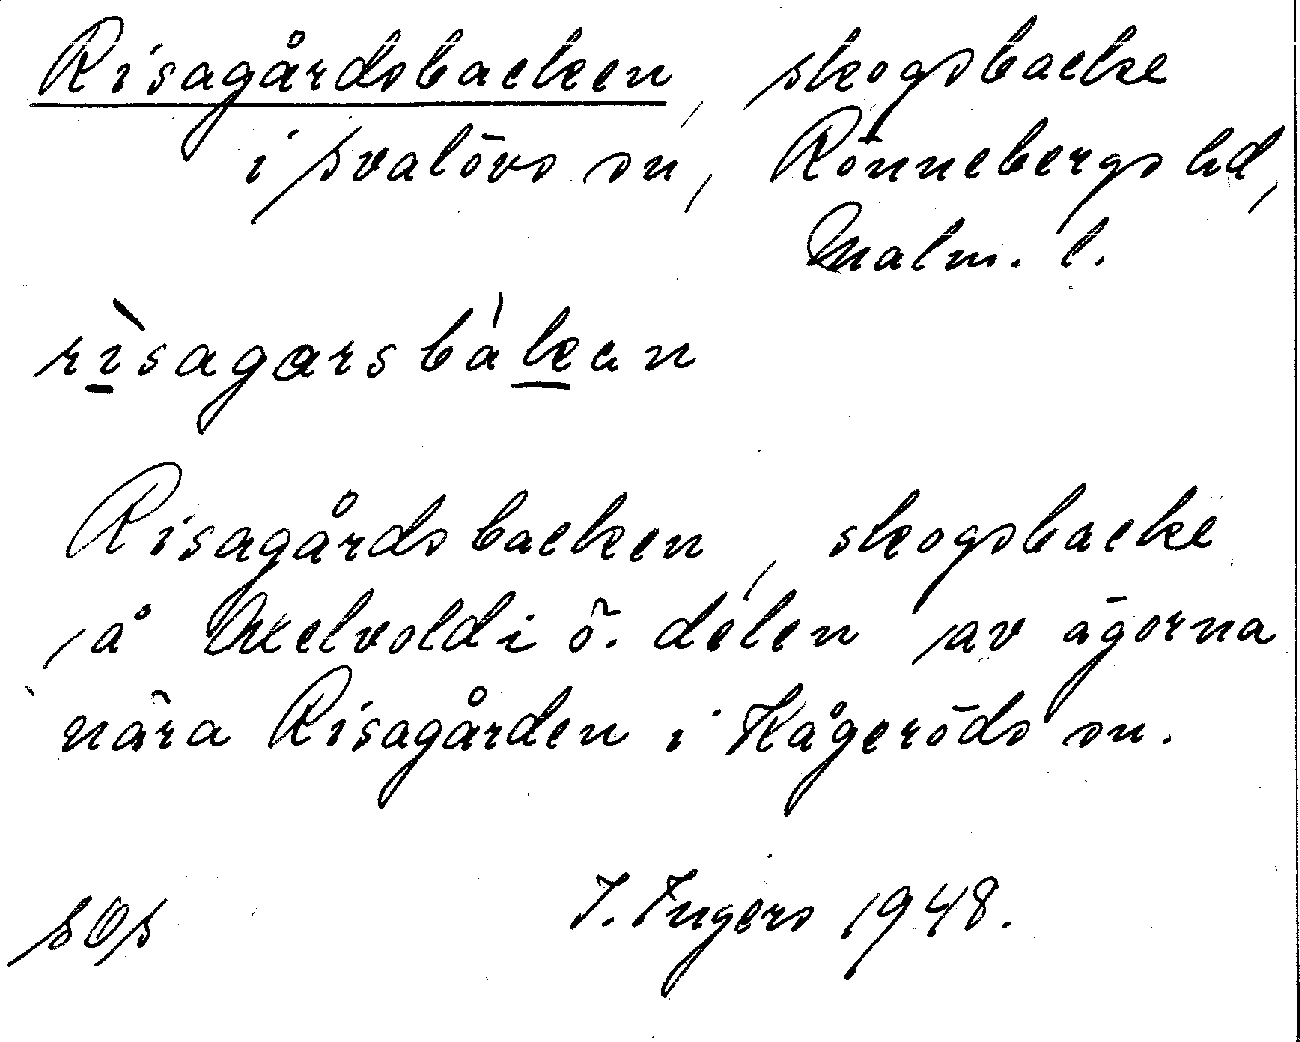 Risagårdsbacken, skogsbacke
i Svalövs sn, Rönnebergs hd,
Malm. l.
rìsagarsbàkan
Risagårdsbacken, skogsbacke
å Axelvold i ö. delen av ägorna
nära Risagården i Kågeröds sn.
SOS I. Ingers 1948.